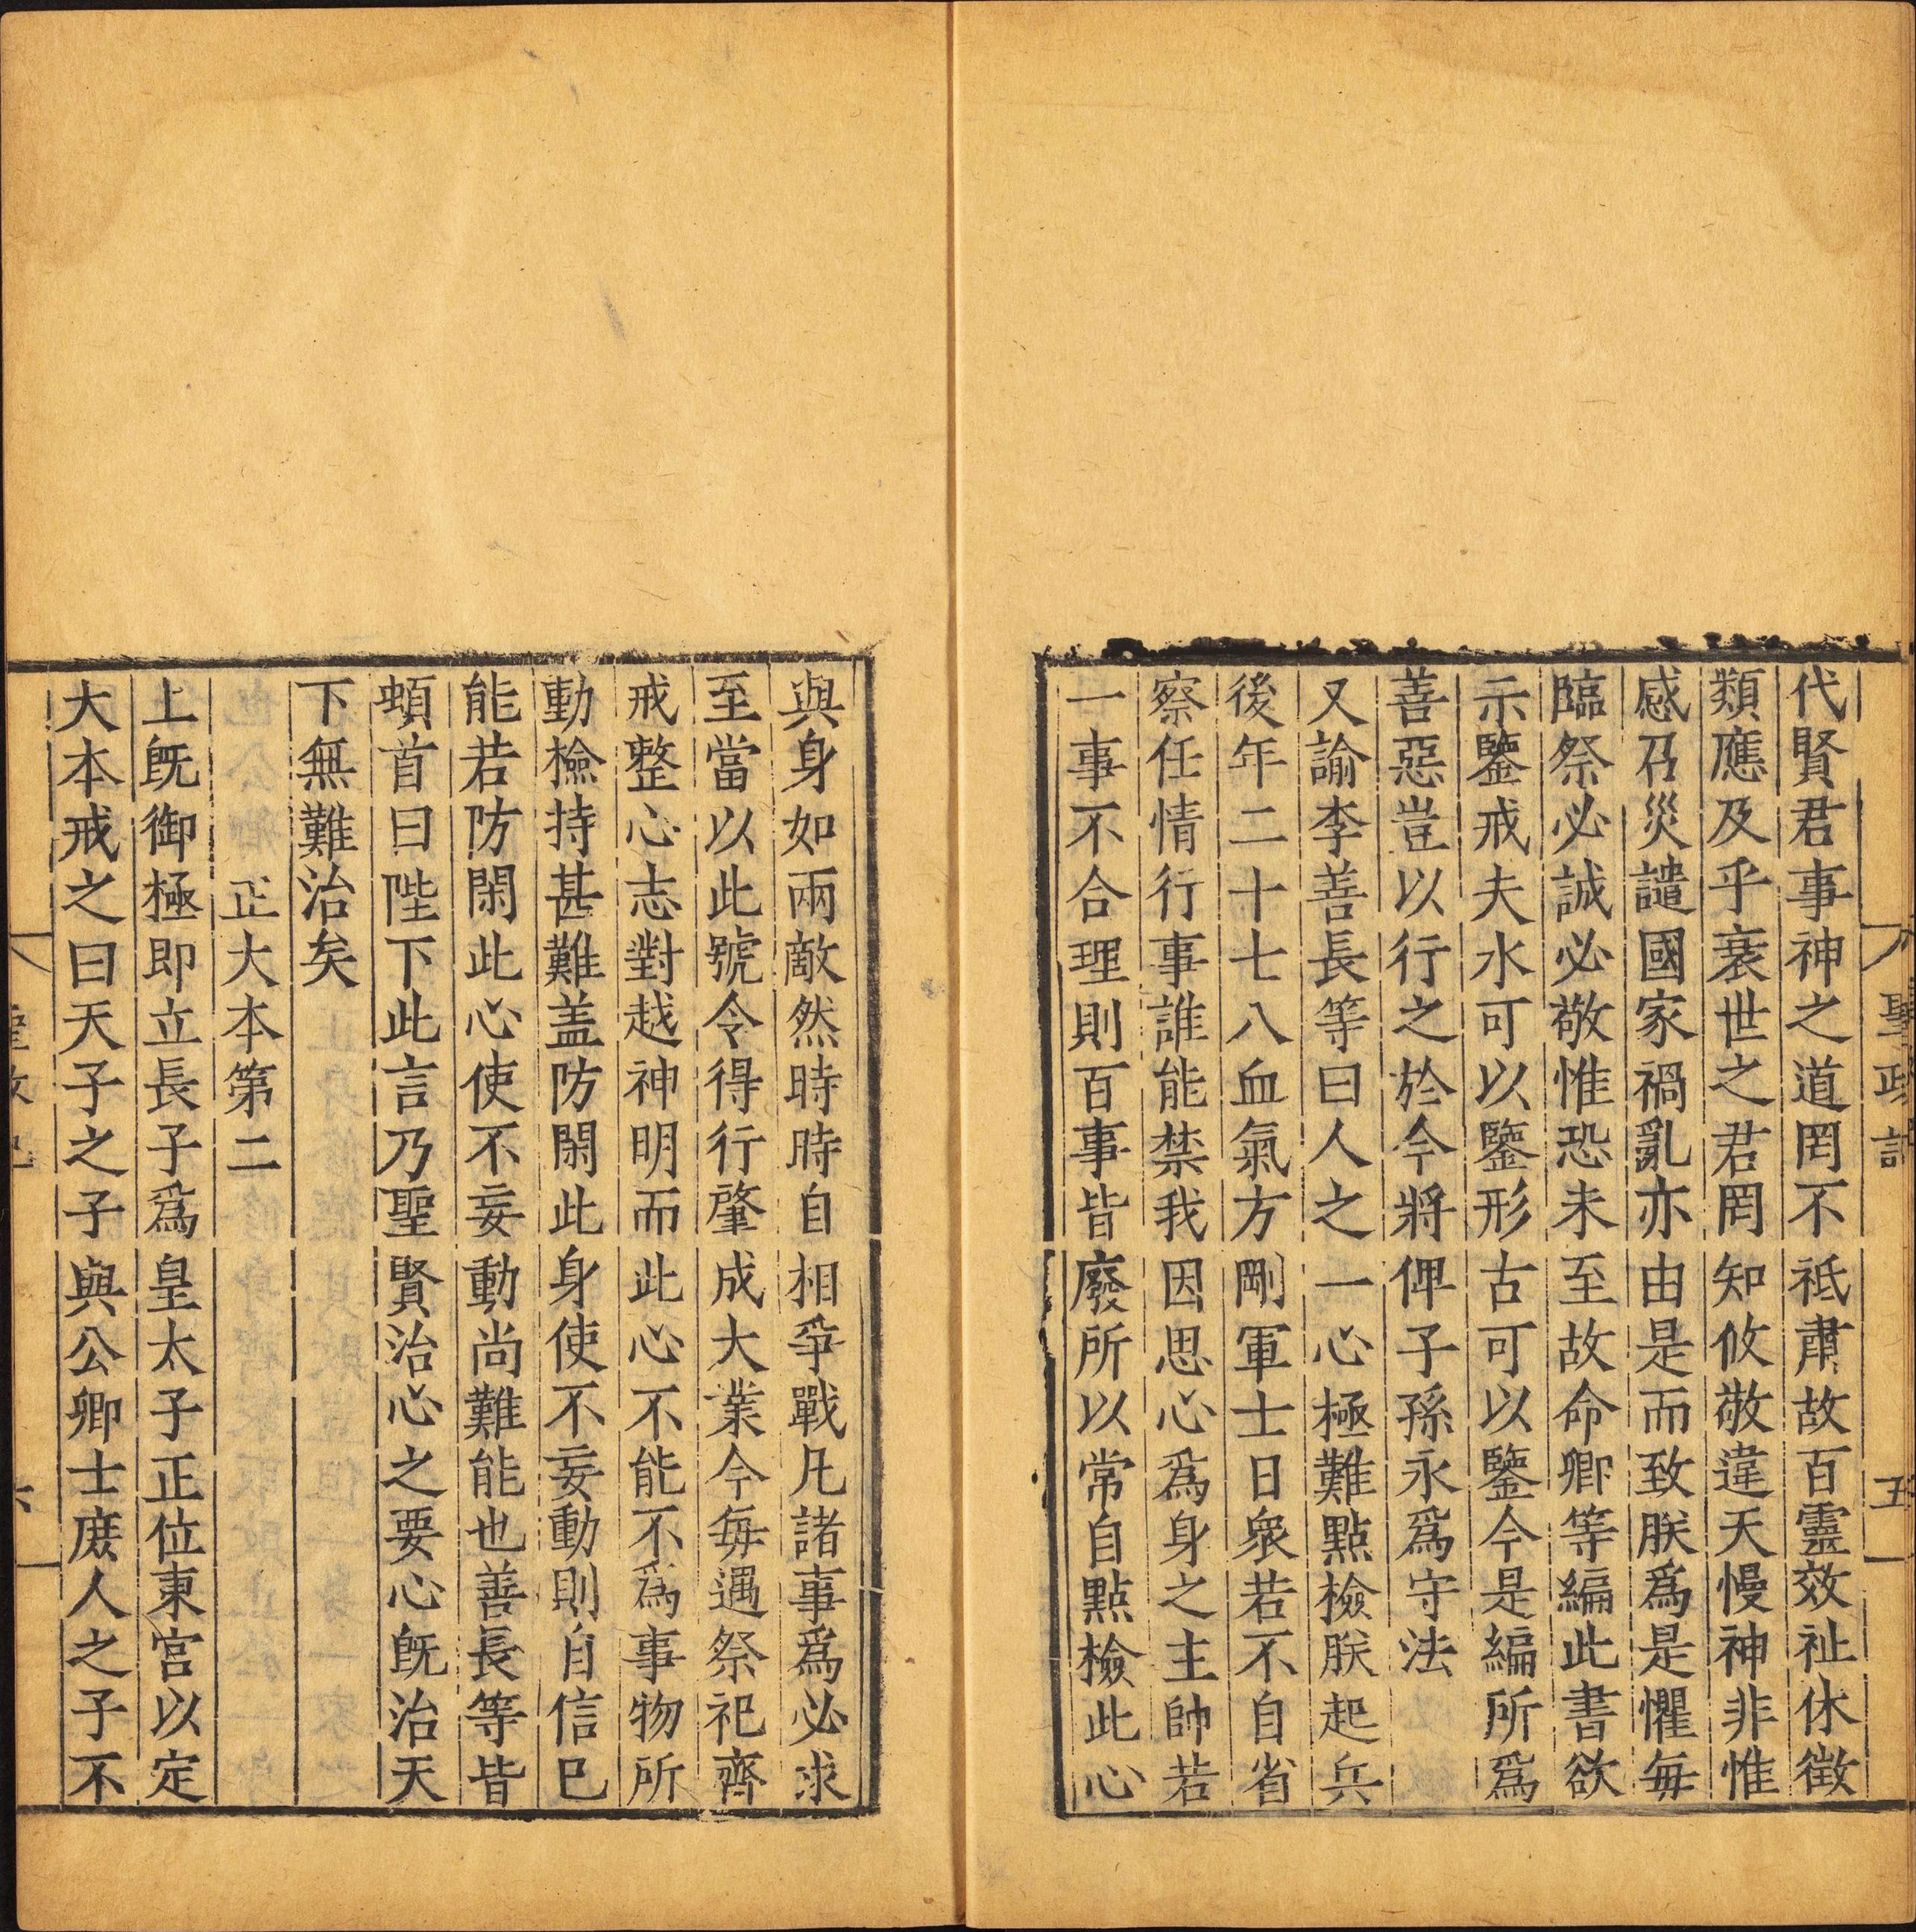 聖政記
五
代賢君事神之道罔不祗肅故百靈效祉休徵
類應及乎衰世之君罔知攸敬違天慢神非惟
感召災譴國家禍亂亦由是而致朕爲是懼每
臨祭必誠必敬惟恐未至故命卿等編此書欲
示鑒戒夫水可以鑒形古可以鑒今是編所爲
善惡豈以行之於今將俾子孫永爲守法
又諭李善長等曰人之一心極難點檢朕起兵
後年二十七八血氣方剛軍士日衆若不自省
察任情行事誰能禁我因思心爲身之主帥若
一事不合理則百事皆廢所以常自點檢此心
與身如兩敵然時時自相爭戰凡諸事爲必求
至當以此號令得行肇成大業今每遇祭祀齊
戒整心志對越神明而此心不能不爲事物所
動檢持甚難盖防閑此身使不妄動則自信已
能若防閑此心使不妄動尚難能也善長等皆
頓首曰陛下此言乃聖賢治心之要心既治天
下無難治矣
正大本第二
上既御極即立長子爲皇太子正位東宮以定
大本戒之曰天子之子與公卿士庶人之子不